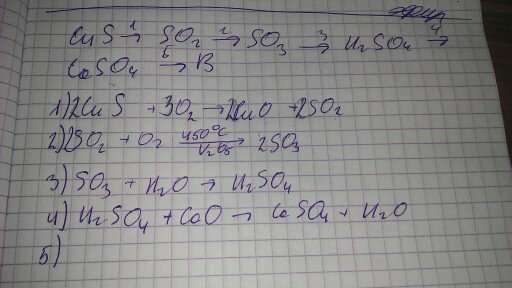 CuS →1 SO2 →2 SO3 →3 H2SO4 →4
CaSO4 →5 B
1) 2CuS + 3O2 → 2CuO + 2SO2
2) 2SO2 + O2 450°C → V2O5 2SO3
3) SO3 + H2O → H2SO4
4) H2SO4 + CaO → CaSO4 + H2O
5)